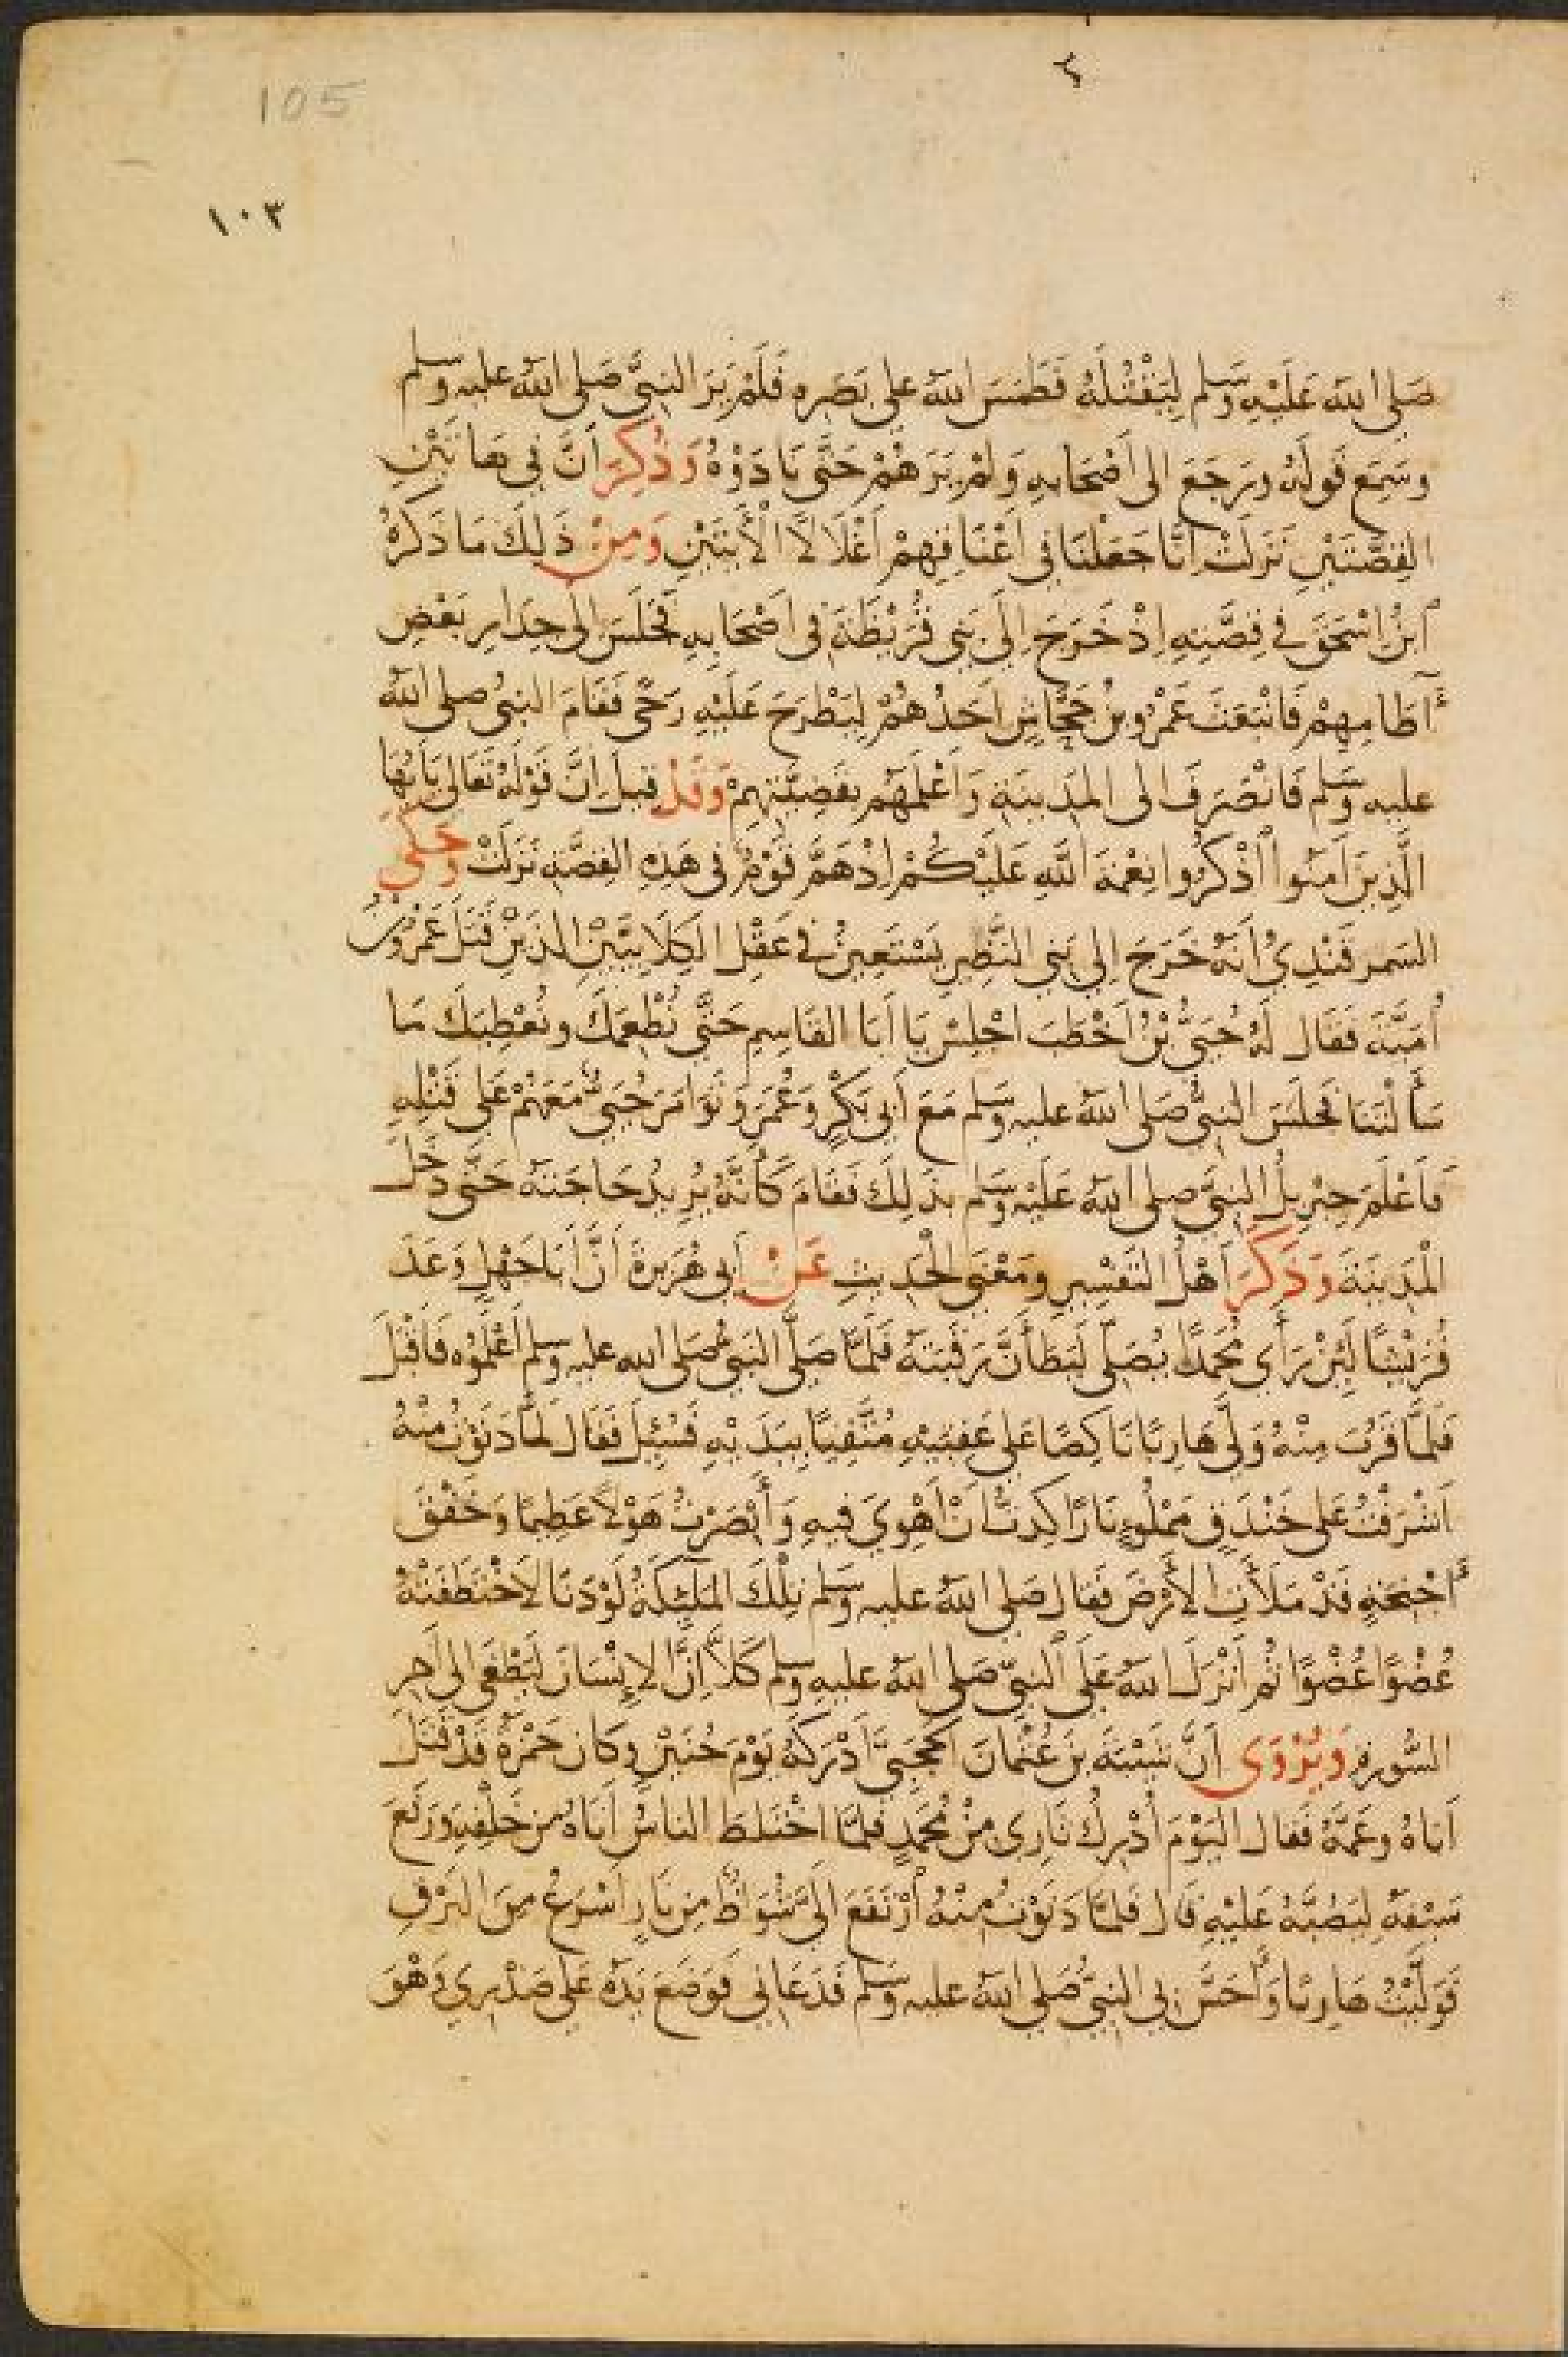 105
١٠٣
صَلى اللهُ عَلَيْهِ وَسَلم لِيَقْتُلَهُ فَطَمَسَ اللهُ على بَصَرِهِ فَلَمْ يَرَ النبيَّ صَلى اللهُ عليه وسلم
وسَمِعَ قَولَهُ ورَجَعَ الى أَصْحَابِهِ وَلَمْ يَرَهُمْ حَتَّى نَادَوْهُ وَذُكِرَ أنَّ في هَاتَيْنِ
القِصَّتَيْنِ نَزلَتْ انَّا جَعَلْنَا في أَعْنَاقِهِمْ أَغْلَالًا الْأَيَتَيْنِ وَمِنْ ذَلِكَ مَا ذَكَرهُ
ابنُ اسْحَقَ في قِصَّتِهِ اِذْ خَرَجَ اِلَى بَنِي قُرَيْظَةَ في أصْحَابِهِ فَجَلَسَ الى جِدَارِ بَعْضِ
آطَامِهِمْ فَانْبَعَثَ عَمْرُو بنُ جَحَّاشٍ أَحَدُهُمْ لِيَطْرَحَ عَلَيْهِ رَحًى فَقَامَ النبيُ صلى اللهُ
عليه وسَلم فَانْصَرَفَ الى المَدِينَةِ وَأَعْلَمَهُم بقصَّتِهِمْ وَقَدْ قيلَ اِنَّ قَوْلَهُ تَعَالى يَأَيُّهَا
الَّذِينَ آمَنُوا اذْكُرُوا نِعْمَةَ اللهِ عَلَيْكُمْ اِذْ هَمَّ قَوْمٌ في هَذِهِ القِصَّةِ نَزَلَتْ وَحَكَى
السَمرقَنْدِيُّ أَنَّهُ خَرَجَ اِلى بَني النَّضِيرِ يَسْتَعِينُ في عَقْلِ الكِلَابِيَّيْنِ الذَيْنِ قَتَلَ عَمْرُو بنُ
أُمَيَّةَ فَقَال لَهُ حُيَيُّ بْنُ أَخْطَبَ اجْلِسْ يَا أَبَا القَاسِمِ حَتَّى نُطْعِمَكَ ونُعْطِيَكَ مَا
سَأَلْتَنَا فَجَلَسَ النبيُّ صَلى اللهُ عليه وَسَلم مَعَ أَبِي بَكْرٍ وَعُمَرَ وَتَوَامَرَ حُيَيٌّ مَعَهُمْ عَلى قَتْلِهِ
فأَعْلَمَ جِبْرِيلُ النبيَّ صلى اللهُ عَلَيْهِ وَسَلم بذَلِكَ فَقَامَ كَأَنَّهُ يُرِيدُ حَاجَتَهُ حَتَّى دَخَلَ
الْمَدِينَةَ وَذَكَرَ أَهْلُ التَفْسِيرِ ومَعْنَى الْحَدِيثِ عَنْ أَبِى هُرَيْرةَ أَنَّ أَبَا جَهْلٍ وَعَدَ
قُرَيْشًا لَئِنْ رَأَى مُحَمَّدًا يُصَلِّي لَيَطَأَنَّ رَقَبَتَهُ فَلَمَّا صَلَّى النَبيُّ صَلى الله عليه وسلم أَعْلَمُوه فَأَقْبَلَ
فَلَمَّا قَرُبَ مِنْهُ وَلَّى هَارِبًا نَاكِصًا عَلى عَقِبَيْهِ مُتَّقِيًا بِيَدَيْهِ فَسُئِلَ فَقَالَ لَمَّا دَنَوْتُ مِنْهُ
أَشْرَفْتُ عَلى خَنْدَقٍ مَمْلُوءٍ نَارًا كِدتُ اَنْ أَهْوِيَ فِيهِ وَأَبْصَرْتُ هَوْلاً عَظِيمًا وَخَفْقَ
أَجْنِحَةٍ قَدْ مَلَأَتِ الأَرْضَ فَقَال صَلى اللهُ عليه وَسَلم تِلْكَ المَلئكَةُ لَوْ دَنَا لَاخْتَطَفَتْهُ
عُضْوًا عُضْوًا ثُم أَنْزَلَ اللهُ عَلَى النبيّ صَلى اللهُ عليهِ وسلم كَلاَّ اِنَّ الاِنْسَانَ لَيَطْغَى الى اَخِر
السُّورةِ وَيُرْوَى أَنَّ شَيْبَةَ بنَ عُثْمَانَ الحَجَبِيَّ أَدْرَكَهُ يَوْمَ حُنَيْنٍ وكَان حَمْزَةُ قَدْ قَتَلَ
أَبَاهُ وعَمَّهُ فَقَال اليَوْمَ أُدْرِكُ ثَارِي مِنْ مُحَمَّدٍ فَلمَّا اخْتَلَطَ الناسُ أَتَاهُ من خَلْفِهِ وَرَفَعَ
سَيْفَهُ لِيَصُبَّهُ عَلَيْهِ قَال فَلمَّا دَنَوْتُ مِنْهُ ارْتَفَعَ اِلَيَّ شُوَاظٌ مِن نَارٍ أَسْرَعُ مِنَ البَرْقِ
فَوَلَّيْتُ هَارِبًا وَأَحَسَّ بِي النبيُّ صَلى اللهُ عليه وَسَلم فَدَعَانِي فَوَضَعَ يَدَهُ عَلَى صَدْرِي وَهْوَ